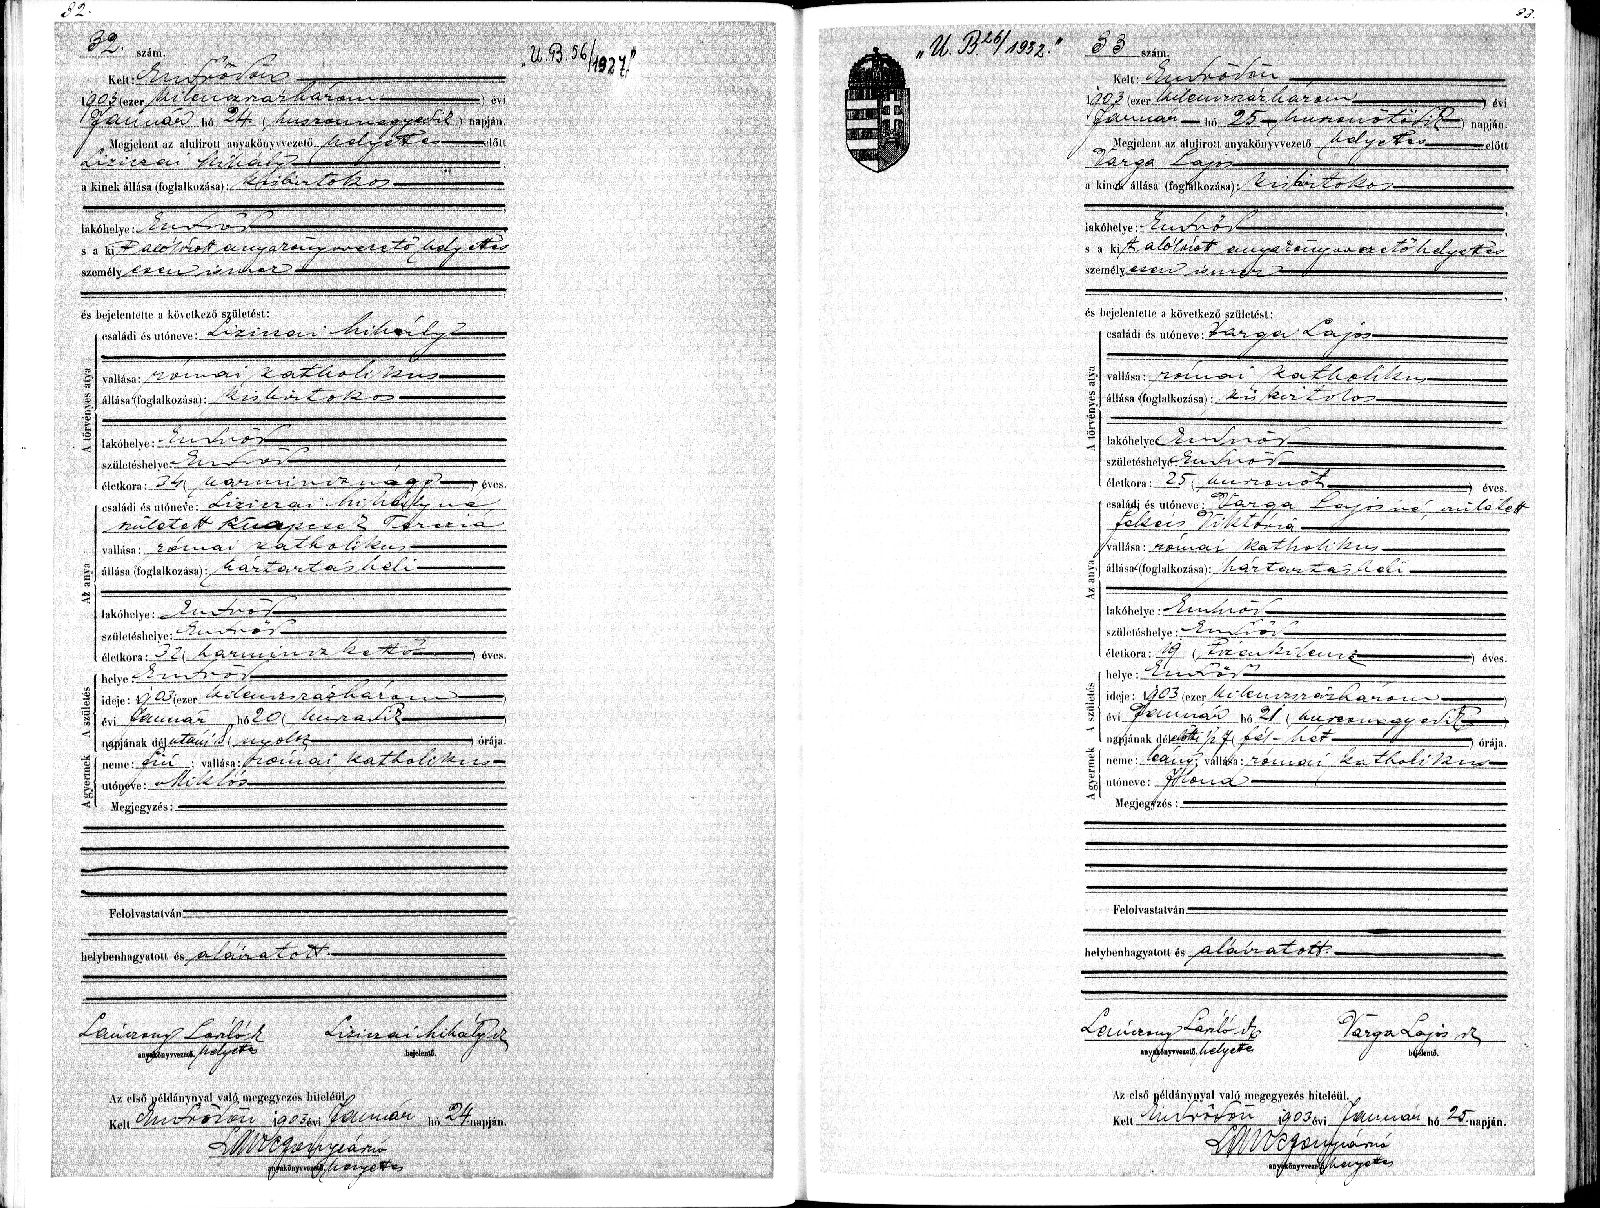 32.
32. szám.
„U. B 56/1927."
Kelt: Endrődön
1903 (ezer kilenczszázhárom) évi
Január hó 24 (huszonnegyedik) napján.
Megjelent az alulirott anyakönyvvezető helyettes előtt
Liziczai Mihály
a kinek állása (foglalkozása): kisbirtokos
lakóhelye: Endrőd
s a kit alólirott anyakönyvvezető helyettes
személyesen ismer
és bejelentette a következő születést:
A törvényes atya
családi és utóneve: Liziczai Mihály
vallása: római katholikus
állása (foglalkozása): kisbirtokos
lakóhelye: Endrőd
születéshelye: Endrőd
életkora: 34 (harmincznégy) éves.
Az anya
családi és utóneve: Liziczai Mihályné
született Knapcsek Terézia
vallása: római katholikus
állása (foglalkozása): háztartásbeli
lakóhelye: Endrőd
születéshelye: Endrőd
életkora: 32 (harminczkettő) éves.
A születés
helye Endrőd
ideje: 1903 (ezer kilenczszázhárom)
évi Január hó 20 (huszadik)
napjának délutáni 8 (nyolcz) órája.
A gyermek
neme: fiú; vallása: római katholikus
utóneve: Miklós
Megjegyzés:
Felolvastatván
helybenhagyatott és aláiratott.
László h. Liziczai Mihály sk
anyakönyvvezető. helyettes bejelentő.
Az első példánynyal való megegyezés hiteléül.
Kelt Endrődön 1903 évi Január hó 24 napján.
anyakönyvvezető. helyettes
33.
„U. B 26/1932."
33 szám.
Kelt: Endrődön
1903 (ezer kilenczszázhárom) évi
Január hó 25 (huszonötödik) napján.
Megjelent az alulirott anyakönyvvezető helyettes előtt
Varga Lajos
a kinek állása (foglalkozása): kisbirtokos
lakóhelye: Endrőd
s a kit alólirott anyakönyvvezető helyettes
személyesen ismer
és bejelentette a következő születést:
A törvényes atya
családi és utóneve: Varga Lajos
vallása: római katholikus
állása (foglalkozása): kisbirtokos
lakóhelye: Endrőd
születéshelye: Endrőd
életkora: 25 (huszonöt) éves.
Az anya
családi és utóneve: Varga Lajosné, született
Viktória
vallása: római katholikus
állása (foglalkozása): háztartásbeli
lakóhelye: Endrőd
születéshelye: Endrőd
életkora: 19 (tizenkilencz) éves.
A születés
helye: Endrőd
ideje: 1903 (ezer kilenczszázhárom)
évi Január hó 21 (huszonegyedik)
napjának délelőtti ½7 (fél-hét) órája.
A gyermek
neme: leány; vallása: római katholikus
utóneve: Ilona
Megjegyzés:
Felolvastatván
helybenhagyatott és aláiratott.
László sk Varga Lajos sk
anyakönyvvezető. helyettes bejelentő.
Az első példánynyal való megegyezés hiteléül.
Kelt Endrődön 1903 évi Január hó 25 napján.
anyakönyvvezető. helyettes